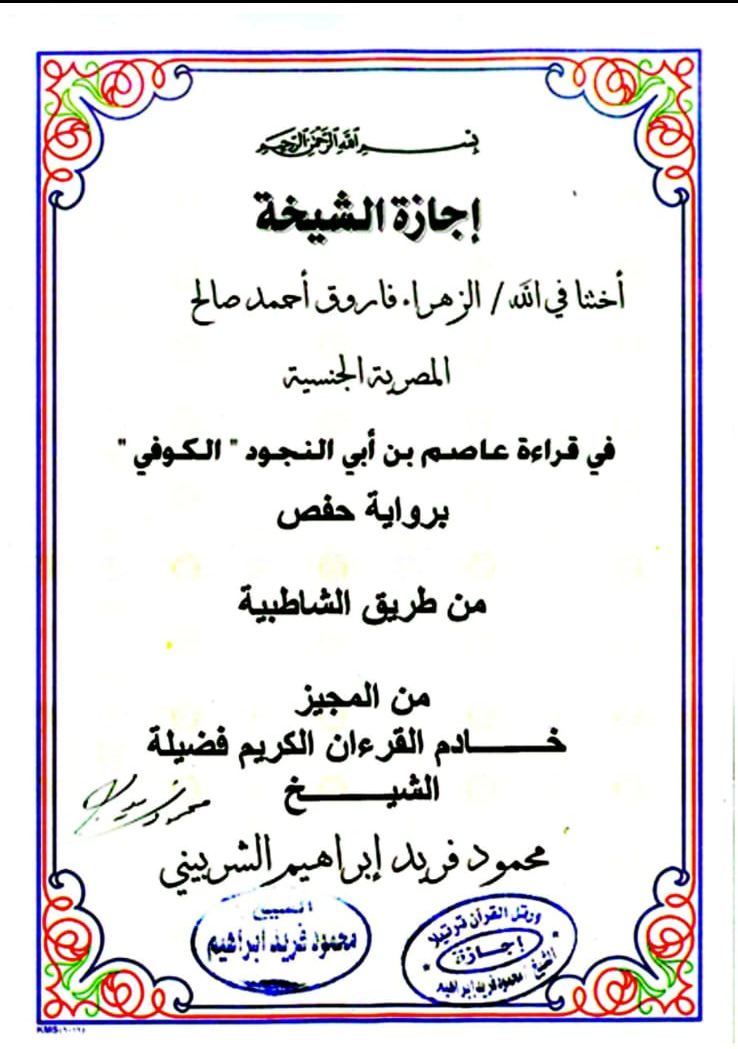 بسم الله الرحمن الرحيم
إجازة الشيخة
أختنا في الله / الزهراء فاروق أحمد صالح
المصرية الجنسية
في قراءة عاصم بن أبي النجود " الكوفي "
برواية حفص
من طريق الشاطبية
من المجيز
خـــــــادم القرءان الكريم فضيلة
الشيـــــــخ
محمود فريد إبراهيم الشربيني
الشيخ
محمود فريد ابراهيم
ورتل القرآن ترتيلا
إجازة
الشيخ / محمود فريد ابراهيم